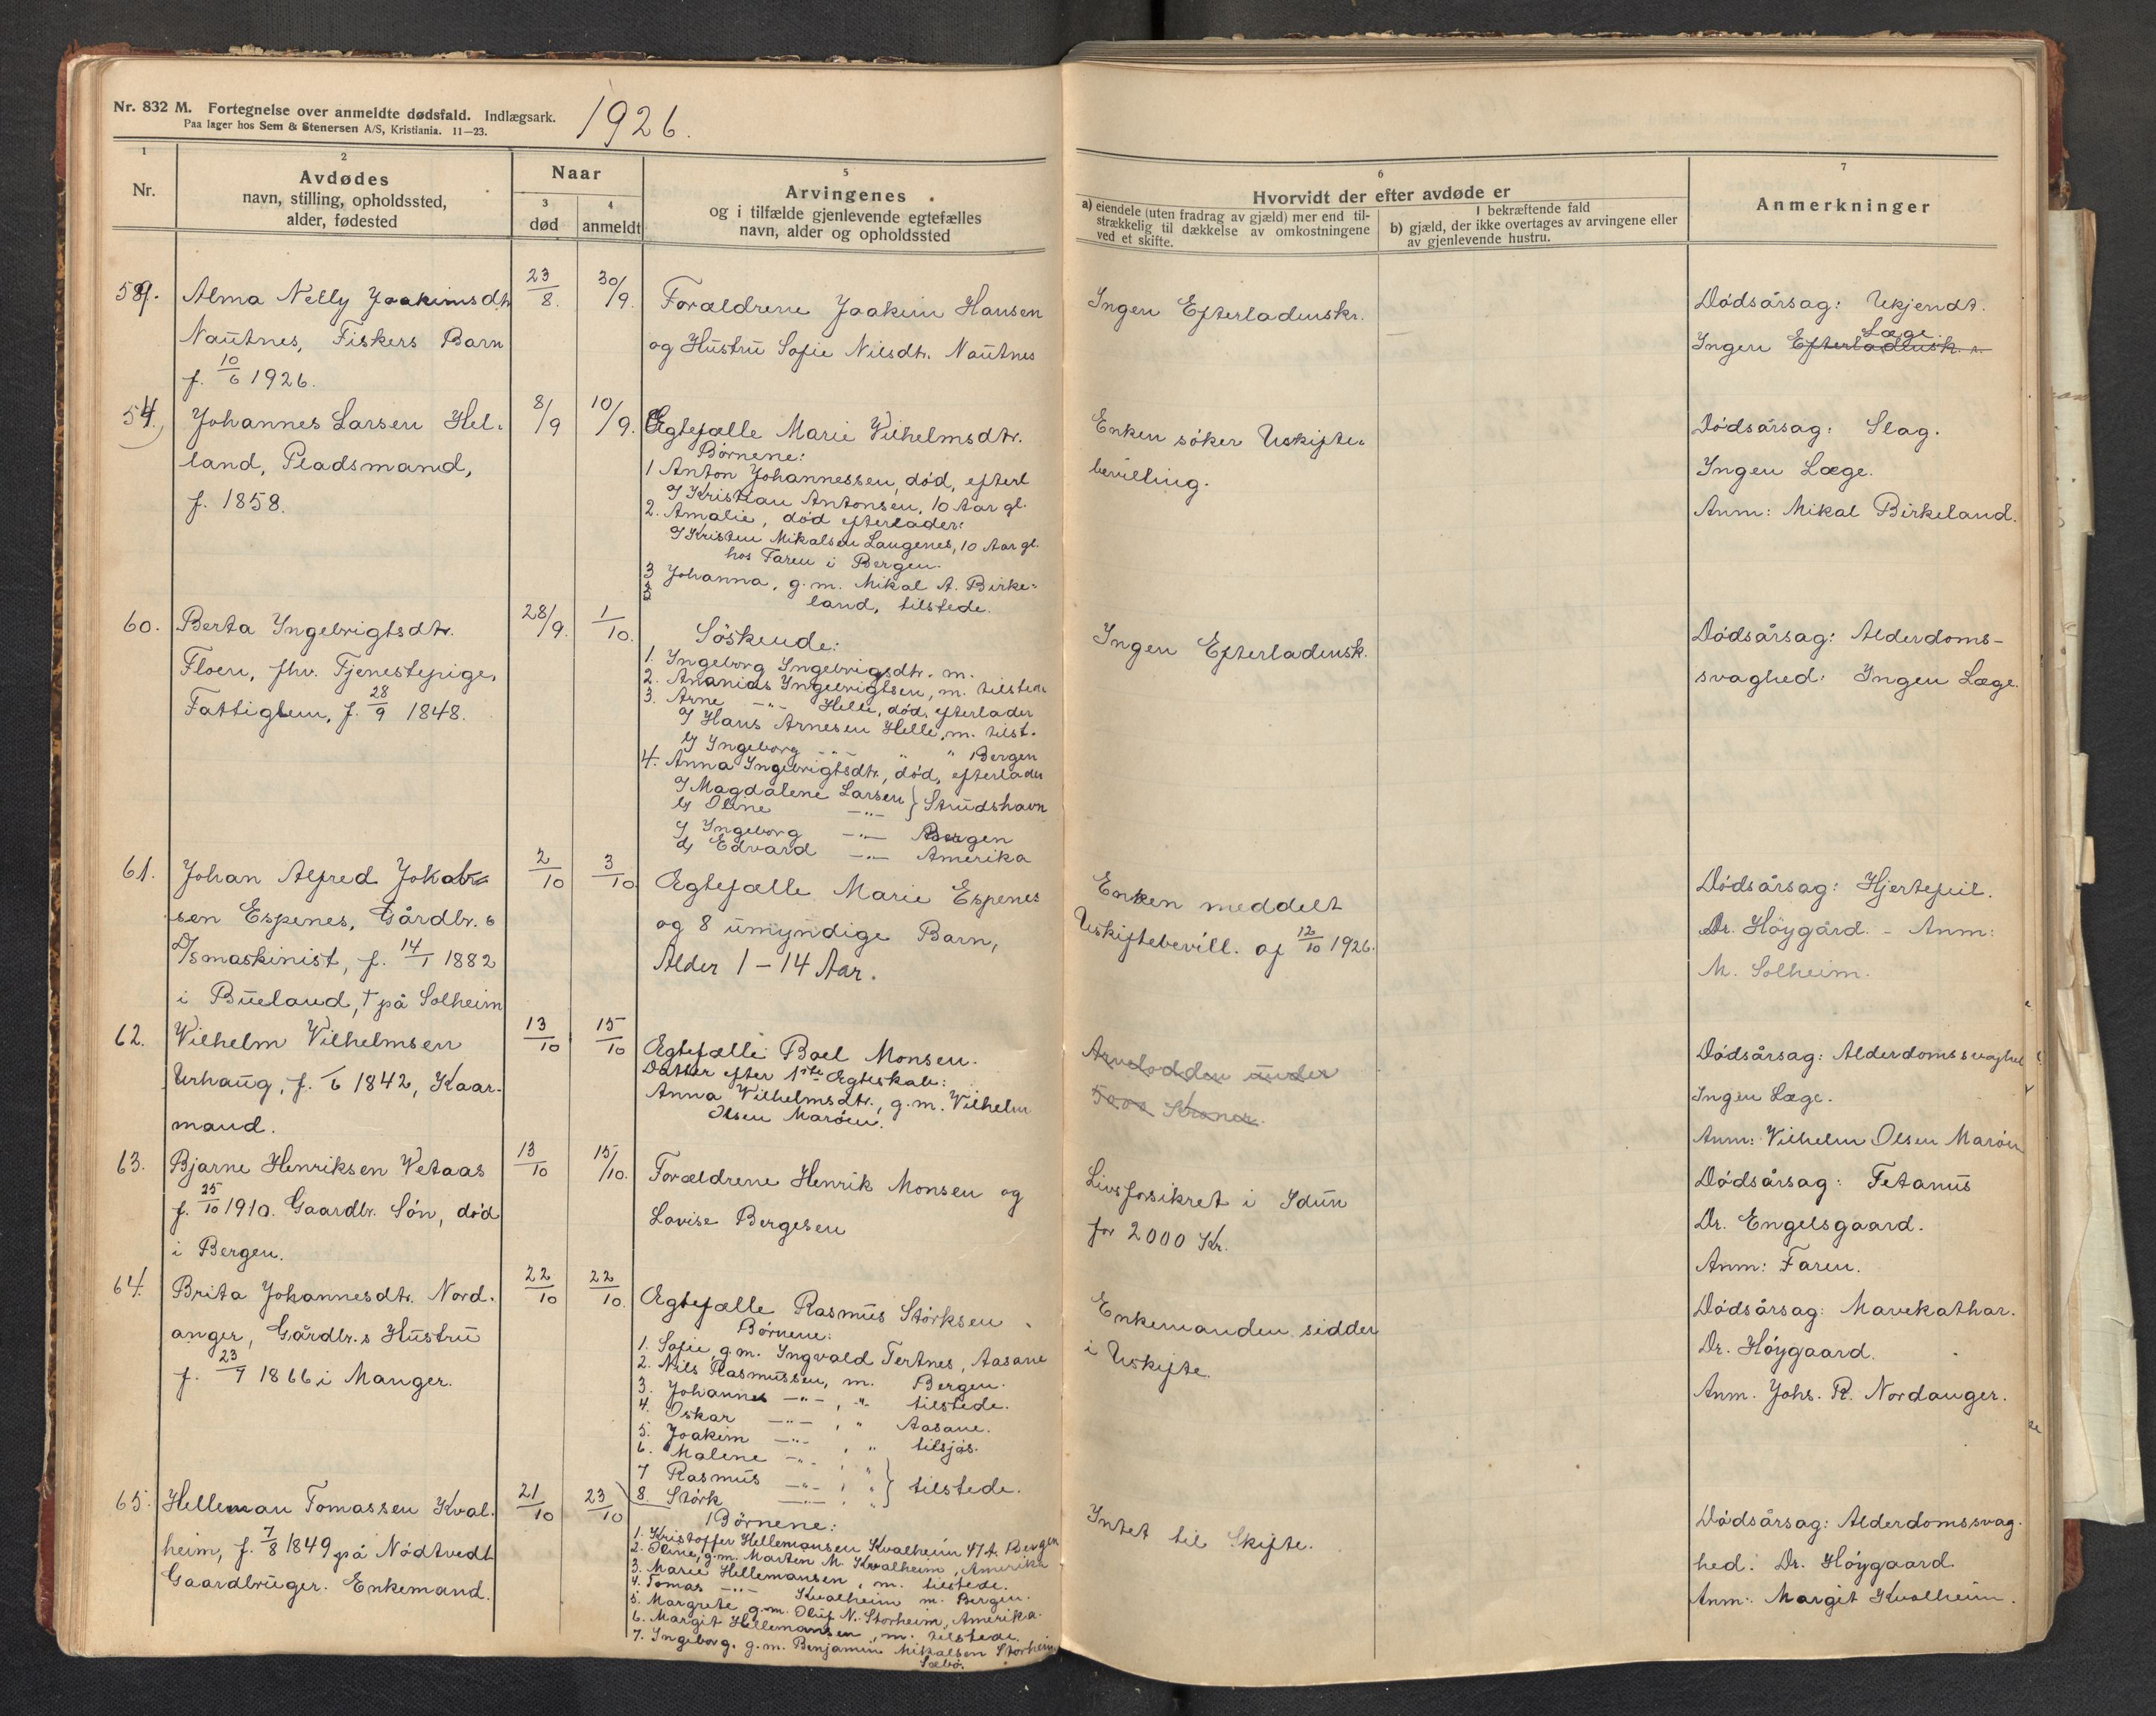 Nr. 832 M. Fortegnelse over anmeldte dødsfald. Indlægsark.
Paa lager hos Sem & Stenersen A/S, Kristiania. 11—23.
1926.
1
Nr.
2
Avdødes
navn, stilling, opholdssted,
alder, fødested
Naar
3
død
4
anmeldt
5
Arvingenes
og i tilfælde gjenlevende egtefælles
navn, alder og opholdssted
6
Hvorvidt der efter avdøde er
a) eiendele (uten fradrag av gjæld) mer end til-
strækkelig til dækkelse av omkostningene
ved et skifte.
I bekræftende fald
b) gjæld, der ikke overtages av arvingene eller
av gjenlevende hustru.
7
Anmerkninger
59. Alma Nelly Joakimsdtr.
Nautnes, Fiskers Barn
f. 10/6 1926.
23/8.
30/9.
Forældrene Joakim Hansen
og Hustru Sofie Nilsdtr. Nautnes
Ingen Efterladenskr.
Dødsårsag: Ukjendt.
Ingen Efterladensk.r. Læge
54. Johannes Larsen Hel-
land, Pladsmand,
f. 1858.
8/9
10/9.
Egtefælle Marie Vilhelmsdtr.
Børnene:
1 Anton Johannessen, død, efterl
a) Kristian Antonsen, 10 Aar gl.
2. Amalie, død efterlader:
a) Kristen Mikalsen Langenes, 10 Aar gl.
hos Faren i Bergen.
3 Johanna, g.m. Mikal A. Birke-
land, tilstede.
Enken søker Uskifte-
bevilling.
Dødsårsag: Slag.
Ingen Læge.
Anm: Mikal Birkeland.
60. Berta Ingebrigtsdtr.
Floen, fhv. Tjenestepige,
Fattiglem, f. 28/9 1848.
28/9.
1/10.
Søskende:
1. Ingeborg Ingebrigsdtr. m.
2. Ananias Ingebrigtsen, m. tilstede
3. Arne —"— Helle, død, efterlader
a) Hans Arnesen Helle, m. tilst.
b) Ingeborg —"— " " Bergen
4. Anna Ingebrigtsdtr., død, efterlader
a) Magdalene Larsen } Strudshavn
b) Oline —"—
c) Ingeborg —"— Bergen
d) Edvard —"— Amerika
Ingen Efterladensk.
Dødsårsag: Alderdoms-
svaghed. Ingen Læge.
61. Johan Alfred Jokab-
sen Espenes, Gårdbr. o
D/Smaskinist, f. 14/1 1882
i Bueland, † på Solheim
2/10
3/10
Ægtefælle Marie Espenes
og 8 umyndige Barn,
Alder 1 – 14 Aar.
Enken meddelt
Uskiftebevill. af 12/10 1926.
Dødsårsag: Hjertefeil.
Dr. Høygård. - Anm:
M. Solheim.
62. Vilhelm Vilhelmsen
Urhaug, f. /6 1842, Kaar-
mand.
13/10
15/10
Ægtefælle Boel Monsen.
Datter efter 1ste Ægteskab:
Anna Vilhelmsdtr., g.m. Vilhelm
Olsen Marøen.
Arvelodden under
5000 Kroner.
Dødsårsag: Alderdomssvaghed
Ingen Læge.
Anm: Vilhelm Olsen Marøen
63. Bjarne Henriksen Vetaas
f. 25/10 1910. Gaardbr. Søn, død
i Bergen.
13/10
15/10.
Forældrene Henrik Monsen og
Lovise Bergesen
Livsforsikret i Idun
for 2000 Kr.
Dødsårsag: Tetanus
Dr. Engelsgaard.
Anm: Faren.
64. Brita Johannesdtr. Nord-
anger, Gårdbr.s Hustru
f. 23/7 1866 i Manger.
22/10
22/10.
Ægtefælle Rasmus Størksen
Børnene:
1. Sofie, g.m. Ingvald Tertnes, Aasane
2. Nils Rasmussen, m. Bergen.
3. Johannes —"—, " tilstede.
4. Oskar —"—, " Aasane.
5. Joakim —"—, " tilsjøs.
6. Malene —"—, "
7 Rasmus —"—, " } tilstede.
8. Størk —"—, "
Enkemanden sidder
i Uskifte.
Dødsårsag: Mavekathar.
Dr. Høygaard.
Anm. Johs. R. Nordanger.
65. Helleman Tomassen Kval-
heim, f. 7/8 1849 på Nødtvedt
Gaardbruger. Enkemand.
21/10
23/10
Børnene:
1. Kristoffer Hellemansen Kvalheim 47 A. Bergen
2. Oline, g.m. Marten M. Kvalheim, Amerika
3. Marie Hellemansen, m. tilstede.
4. Tomas —"— Kvalheim m. Bergen.
5. Margrete g.m. Oluf N. Storheim, Amerika.
6. Margit Hellemansen, m. tilstede.
7. Ingeborg. g.m. Benjamin Mikalsen Storheim
Sæbø.
Intet til Skifte.
Dødsårsag: Alderdomssvag-
hed. Dr. Høygaard
Anm: Margit Kvalheim.